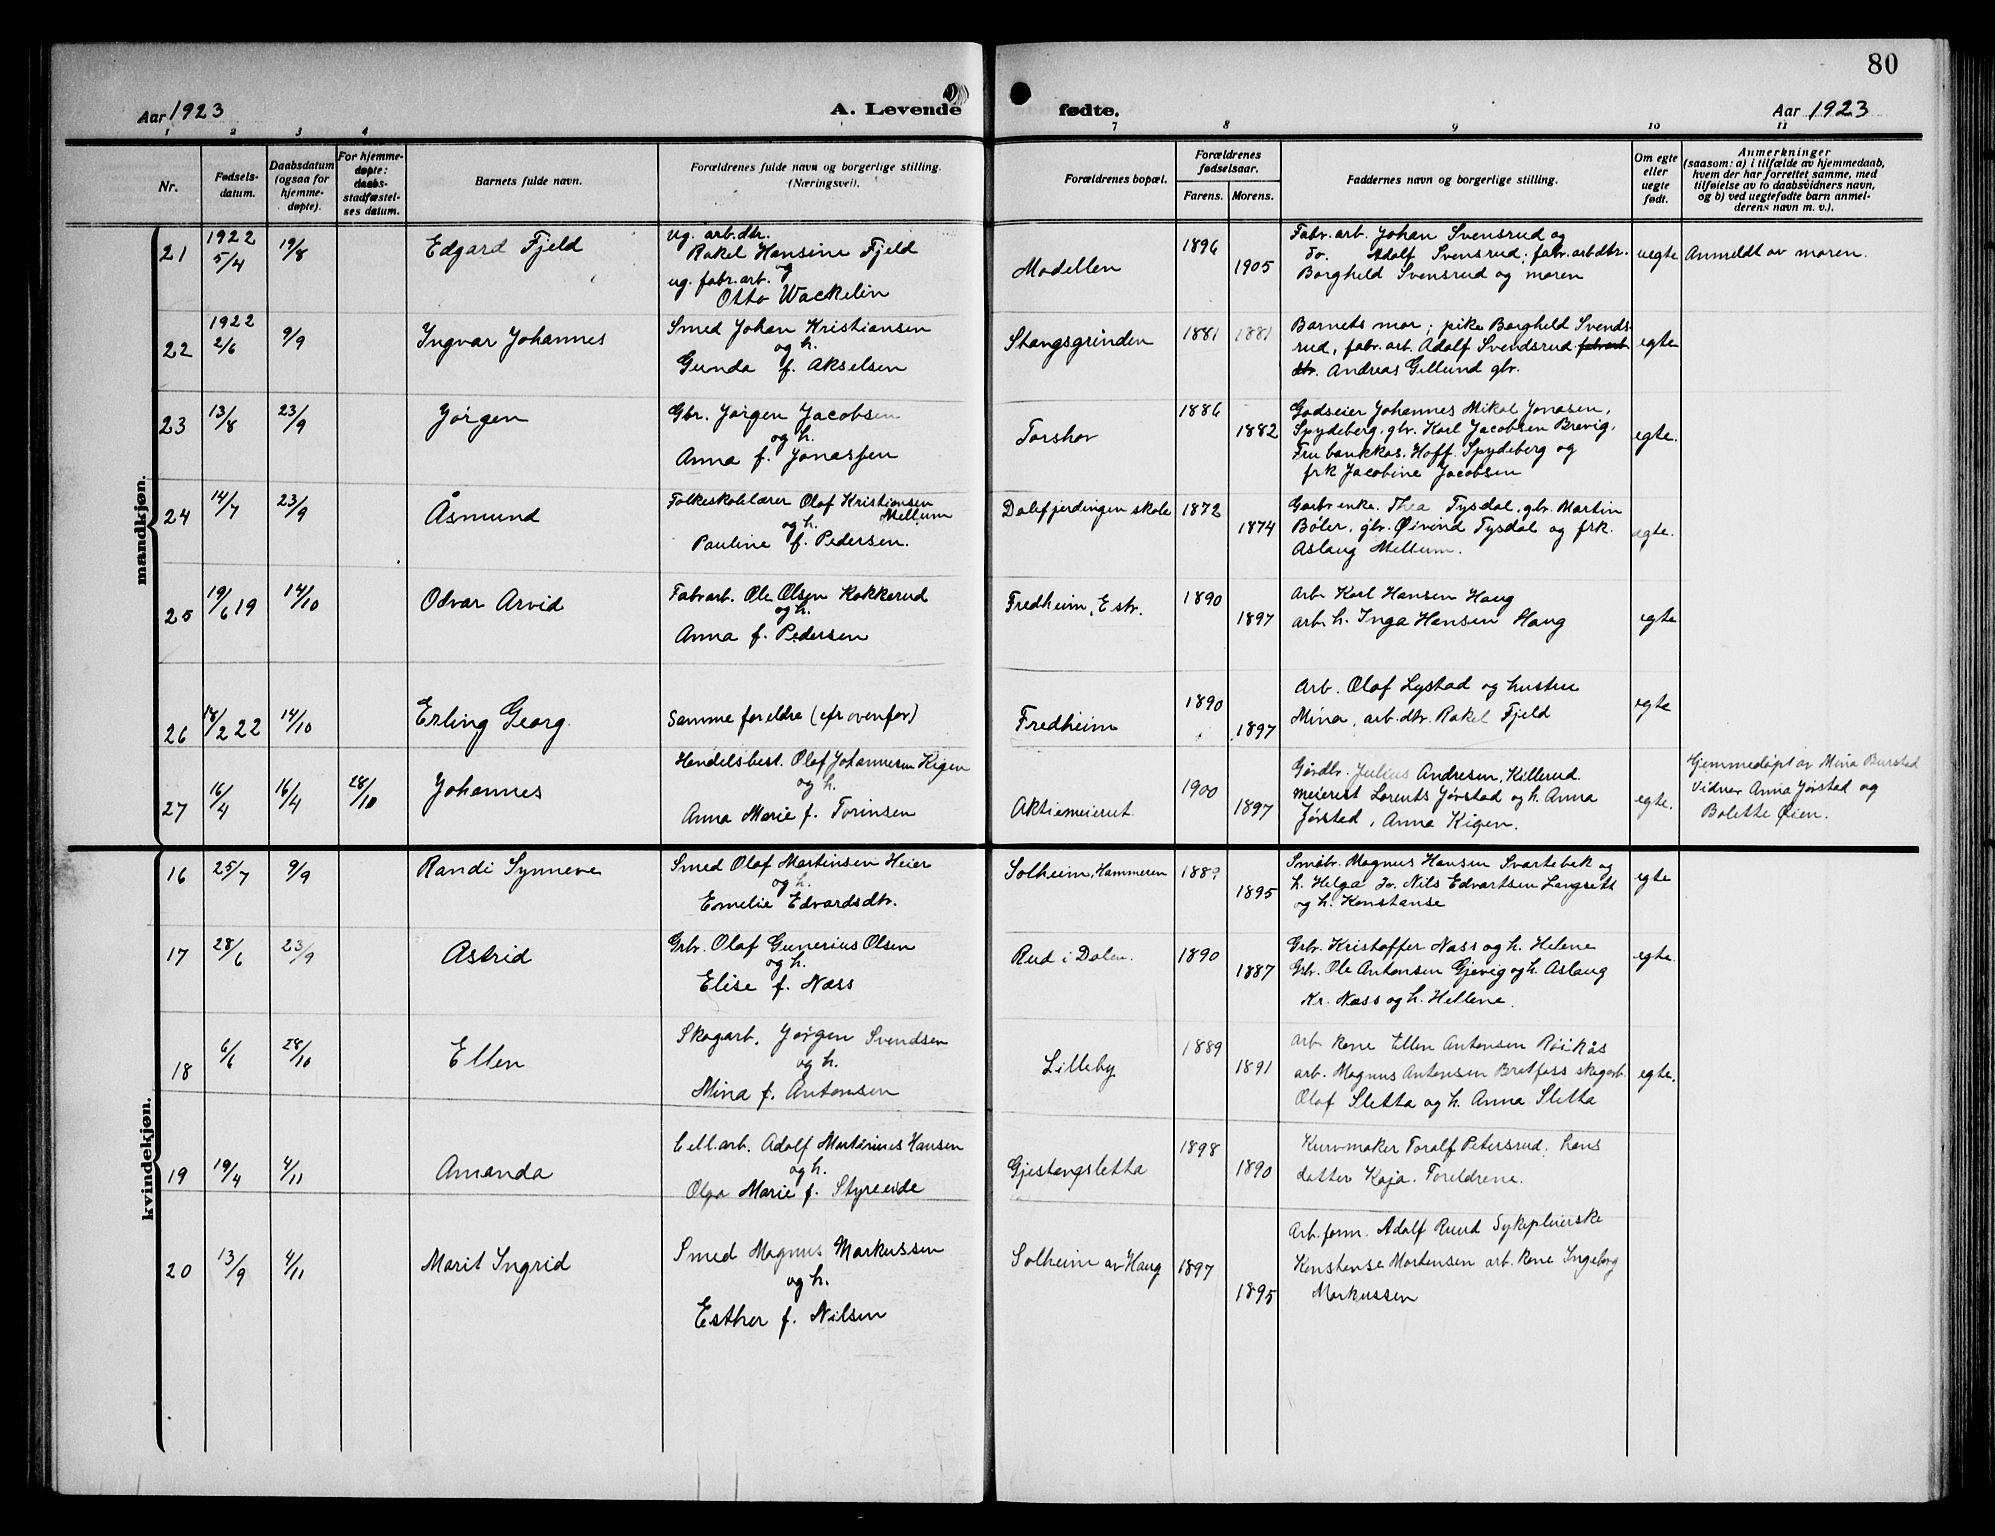 80
Aar 1923
A. Levende fødte.
Aar 1923
1 2 3 4 7 8 9 10 11
Nr.
Fødsels-
datum.
Daabsdatum
(ogsaa for
hjemme-
døpte).
For hjemme-
døpte:
daabs-
stadfæstel-
ses datum.
Barnets fulde navn.
Forældrenes fulde navn og borgerlige stilling.
(Næringsvei).
Forældrenes bopæl.
Forældrenes
fødselsaar.
Farens. Morens.
Faddernes navn og borgerlige stilling.
Om egte
eller
uegte
født.
Anmerkninger
(saasom: a) i tilfælde av hjemmedaab,
hvem der har forrettet samme, med
tilføielse av to daabsvidners navn,
og b) ved uegtefødte barn anmel-
derens navn m. v.).
mandkjøn.
21
1922
5/4
19/8
Edgard Fjeld
ug. arb.dtr.
Rakel Hansine Fjeld
og
ug. fabr.arb.
Otto Wackelin
Modellen
1896
1905
Fabr. arb. Johan Svensrud og
Fo. Adolf Svensrud; fabr. arb dtr.
Borghild Svensrud og moren
uegte
Anmeldt av moren.
22
1922
2/6
9/9
Ingvar Johannes
Smed Johan Kristiansen
og h.
Gunda f. Akselsen
Stangsgrinden
1881
1881
Barnets mor; pike Borghild Svends-
rud, fabr. arb. Adolf Svendsrud fabrarb
dtr. Andreas Gillund gbr.
egte
23
13/8
23/9
Jørgen
Gbr. Jørgen Jacobsen
og h.
Anna f. Jonassen
Torshov
1886
1882
Godseier Johannes Mikal Jonasen,
Spydeberg, gbr. Karl Jacobsen Brevig,
Fru bankkas. Hoff. Spydeberg og
frk Jacobine Jacobsen
egte.
24
14/7
23/9
Åsmund
Folkeskolelærer Olaf Kristiansen
og h. Mellum
Pauline f. Pedersen.
Dalefjerdingen skole
1872
1874
Garbr enke. Thea Tysdal, gbr. Martin
Bøler, gbr. Øivind Tysdal og frk.
Aslaug Mellum.
egte.
25
19/6 19
14/10
Odvar Arvid
Fabrarb. Ole Olsen Kokkerud
og h.
Anna f. Pedersen
Fredheim, E str.
1890
1897
Arb. Karl Hansen Haug
arb. h. Inga Hansen Haug
egte
26
18/2 22
14/10
Erling Georg.
Samme foreldre (cfr ovenfor)
Fredheim
1890
1897
Arb. Olaf Lystad og hustru
Mina, arb. dtr. Rakel Fjeld
egte
27
16/4
16/4
28/10
Johannes
Handelsbest. Olaf Johannesen Kigen
og h.
Anna Marie f. Torinsen
Aktiemeieriet.
1900
1897
Gårdbr. Julius Andresen, Killerud.
meierist Lorents Jørstad og h. Anna
Jørstad, Anna Kigen.
egte.
Hjemmedøpt av Mina Burstad
Vidner Anna Jørstad og
Bolette Øien.
kvindekjøn.
16
25/7
9/9
Randi Synneve
Smed Olaf Martinsen Heier
og h.
Emelie Edvardsdtr.
Solheim, Hammeren
1889
1895
Småbr. Magnus Hansen Svartebek og
h. Helga Fo. Nils Edvartsen Langsett
og h. Konstanse
egte
17
28/6
23/9
Astrid
Grbr. Olaf Gunerius Olsen
og h.
Elise f. Næss
Rud i Dalen.
1890
1887
Grbr. Kristoffer Næss og h. Helene
Grbr. Ole Antonsen Gjevig og h. Aslaug
Kr. Næss og h. Hellene.
egte.
18
6/6
28/10
Ellen
Skogarb. Jørgen Svendsen
og h.
Mina f. Antonsen
Lilleby
1889
1891
Arb. kone Ellen Antonsen Röikås
arb. Magnus Antonsen Bratfoss skogarb.
Olaf Sletta og h. Anna Sletta
egte.
19
19/4
4/11
Amanda
Cell.arb. Adolf Martinius Hansen
og h.
Olga Marie f. Styreide
Gjestangsletta
1898
1890
Kurvmaker Toralf Petersrud, hans
datter Kaja. Foreldrene.
20
13/9
4/11
Marit Ingrid
Smed Magnus Markussen
og h.
Esther f. Nilsen
Solheim av Haug
1897
1895
Arb. form. Adolf Ruud Sykepleierske
Konstanse Mortensen arb. kone Ingeborg
Markussen